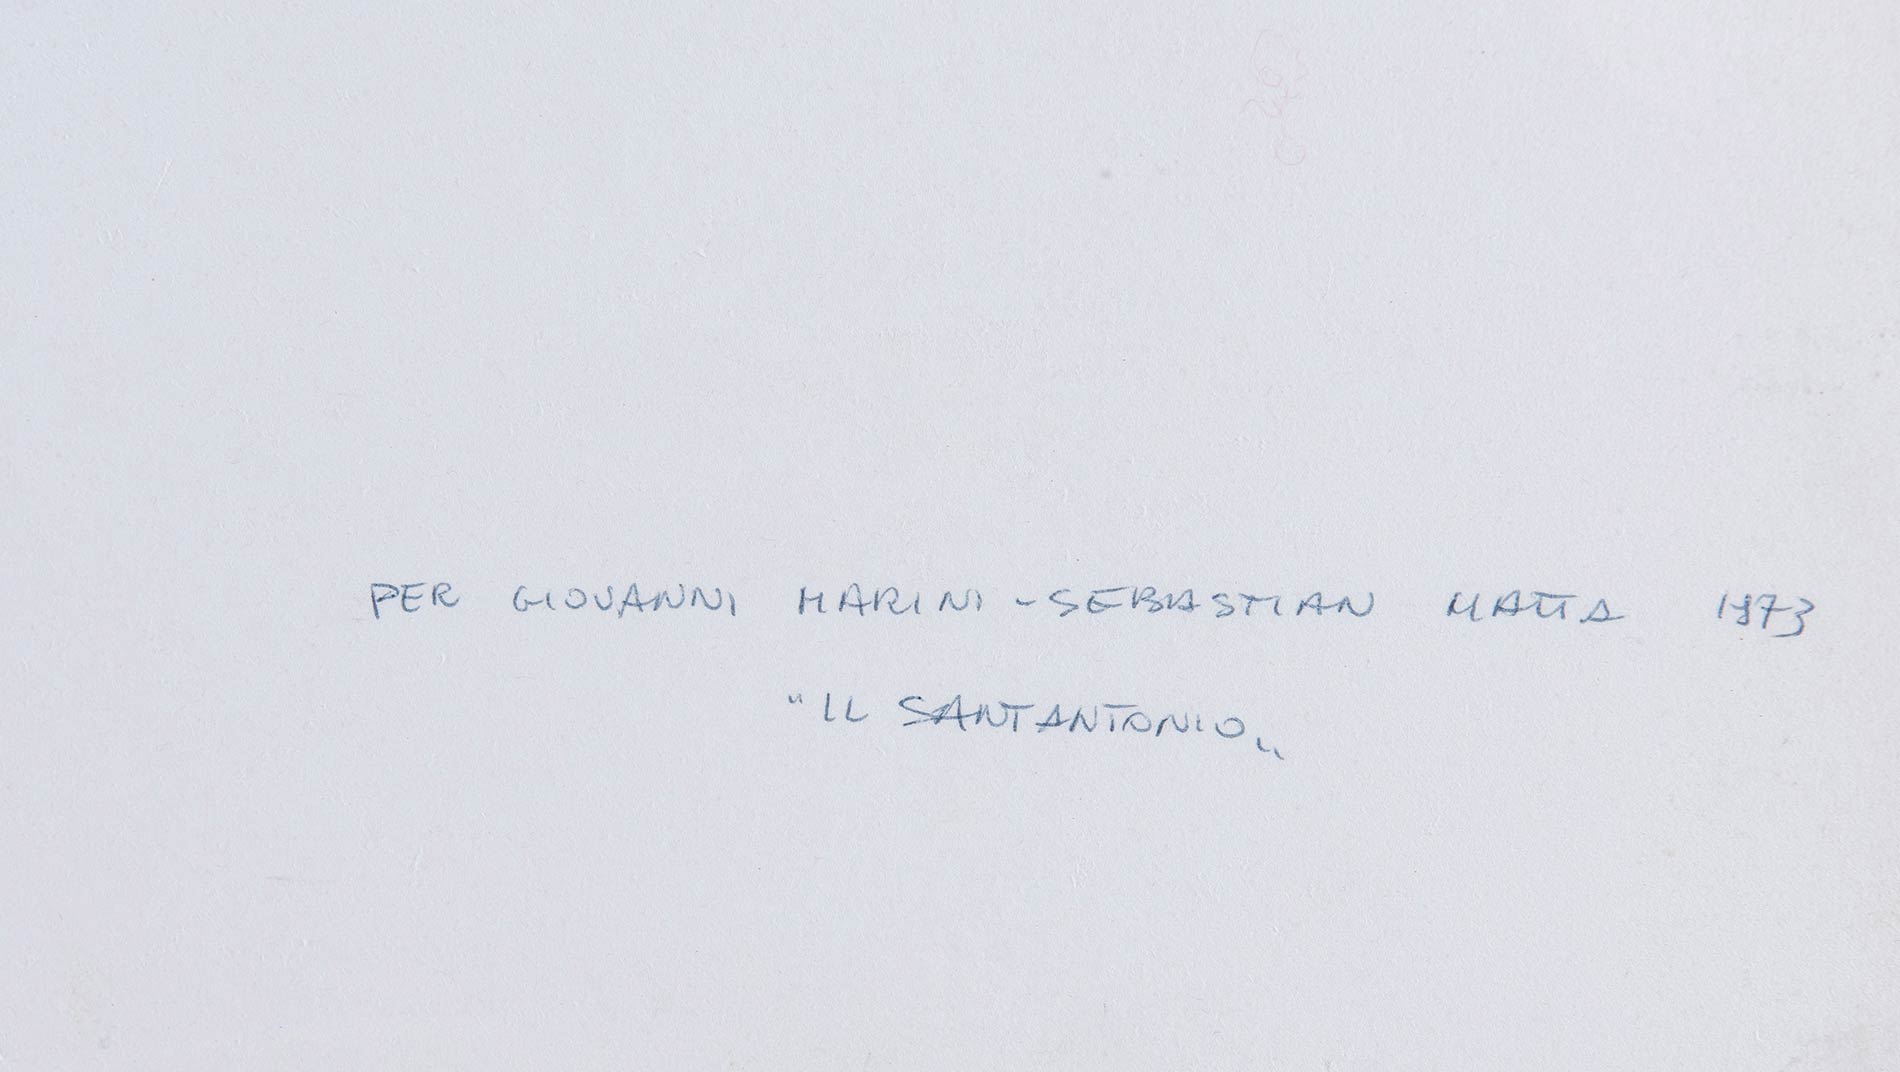 PER GIOVANNI MARINI - SEBASTIAN MATTA 1973
"IL SANTANTONIO„